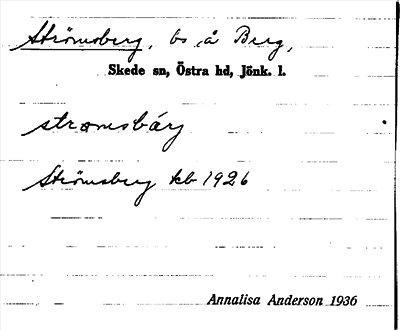 Strömsberg, bs å Berg,
Skede sn, Östra hd, Jönk. l.
strömsbärj
Strömsberg kb 1926
Annalisa Anderson 1936